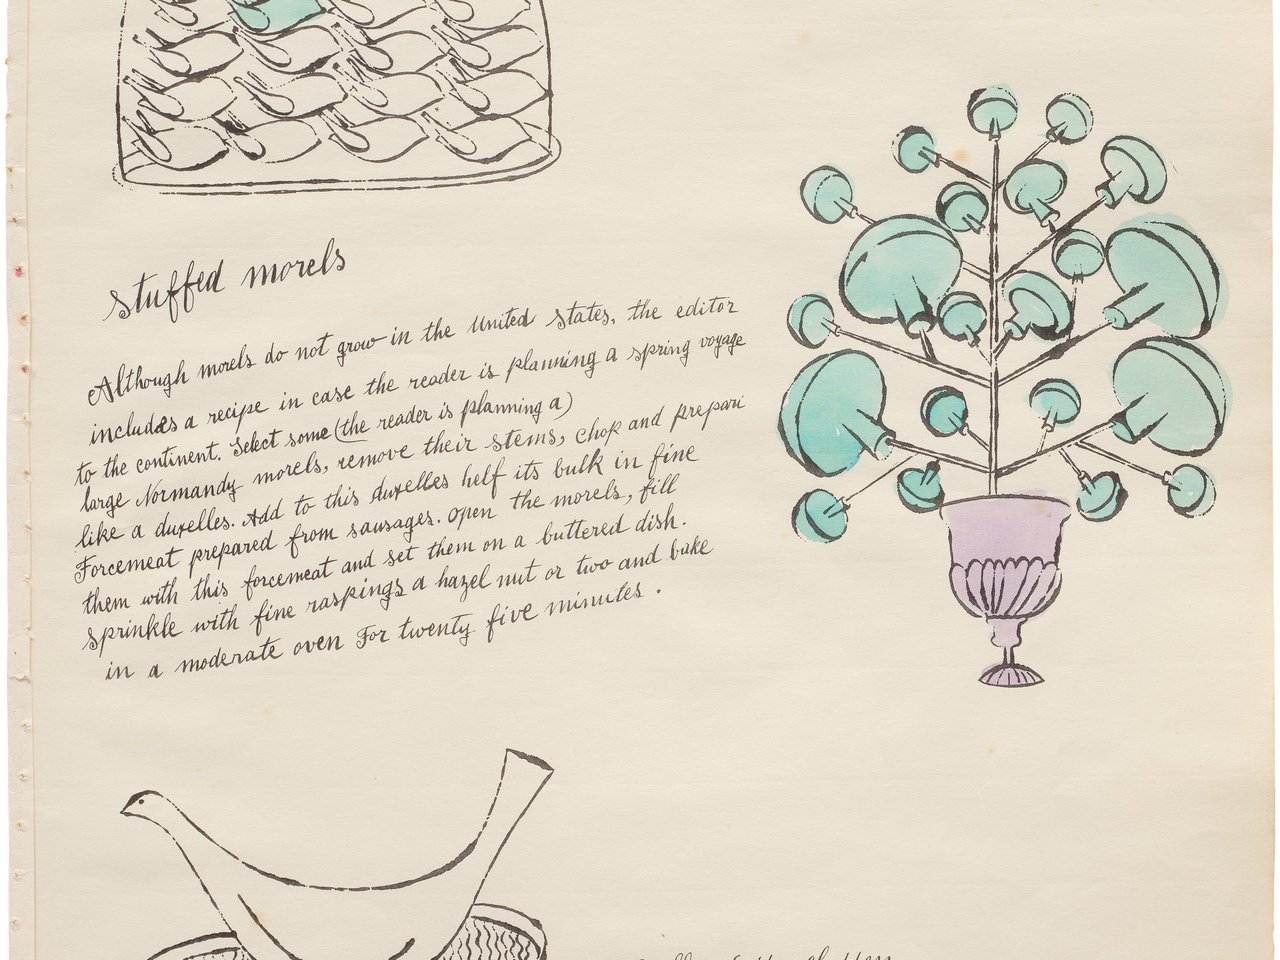 stuffed morels
Although morels do not grow in the United States, the editor
includes a recipe in case the reader is planning a spring voyage
to the continent. Select some (the reader is planning a)
large Normandy morels, remove their stems, chop and prepari
like a duxelles. Add to this duxelles helf its bulk in fine
Forcemeat prepared from sausages. open the morels, fill
them with this forcemeat and set them on a buttered dish.
sprinkle with fine raspings a hazel nut or two and bake
in a moderate oven For twenty five minutes.